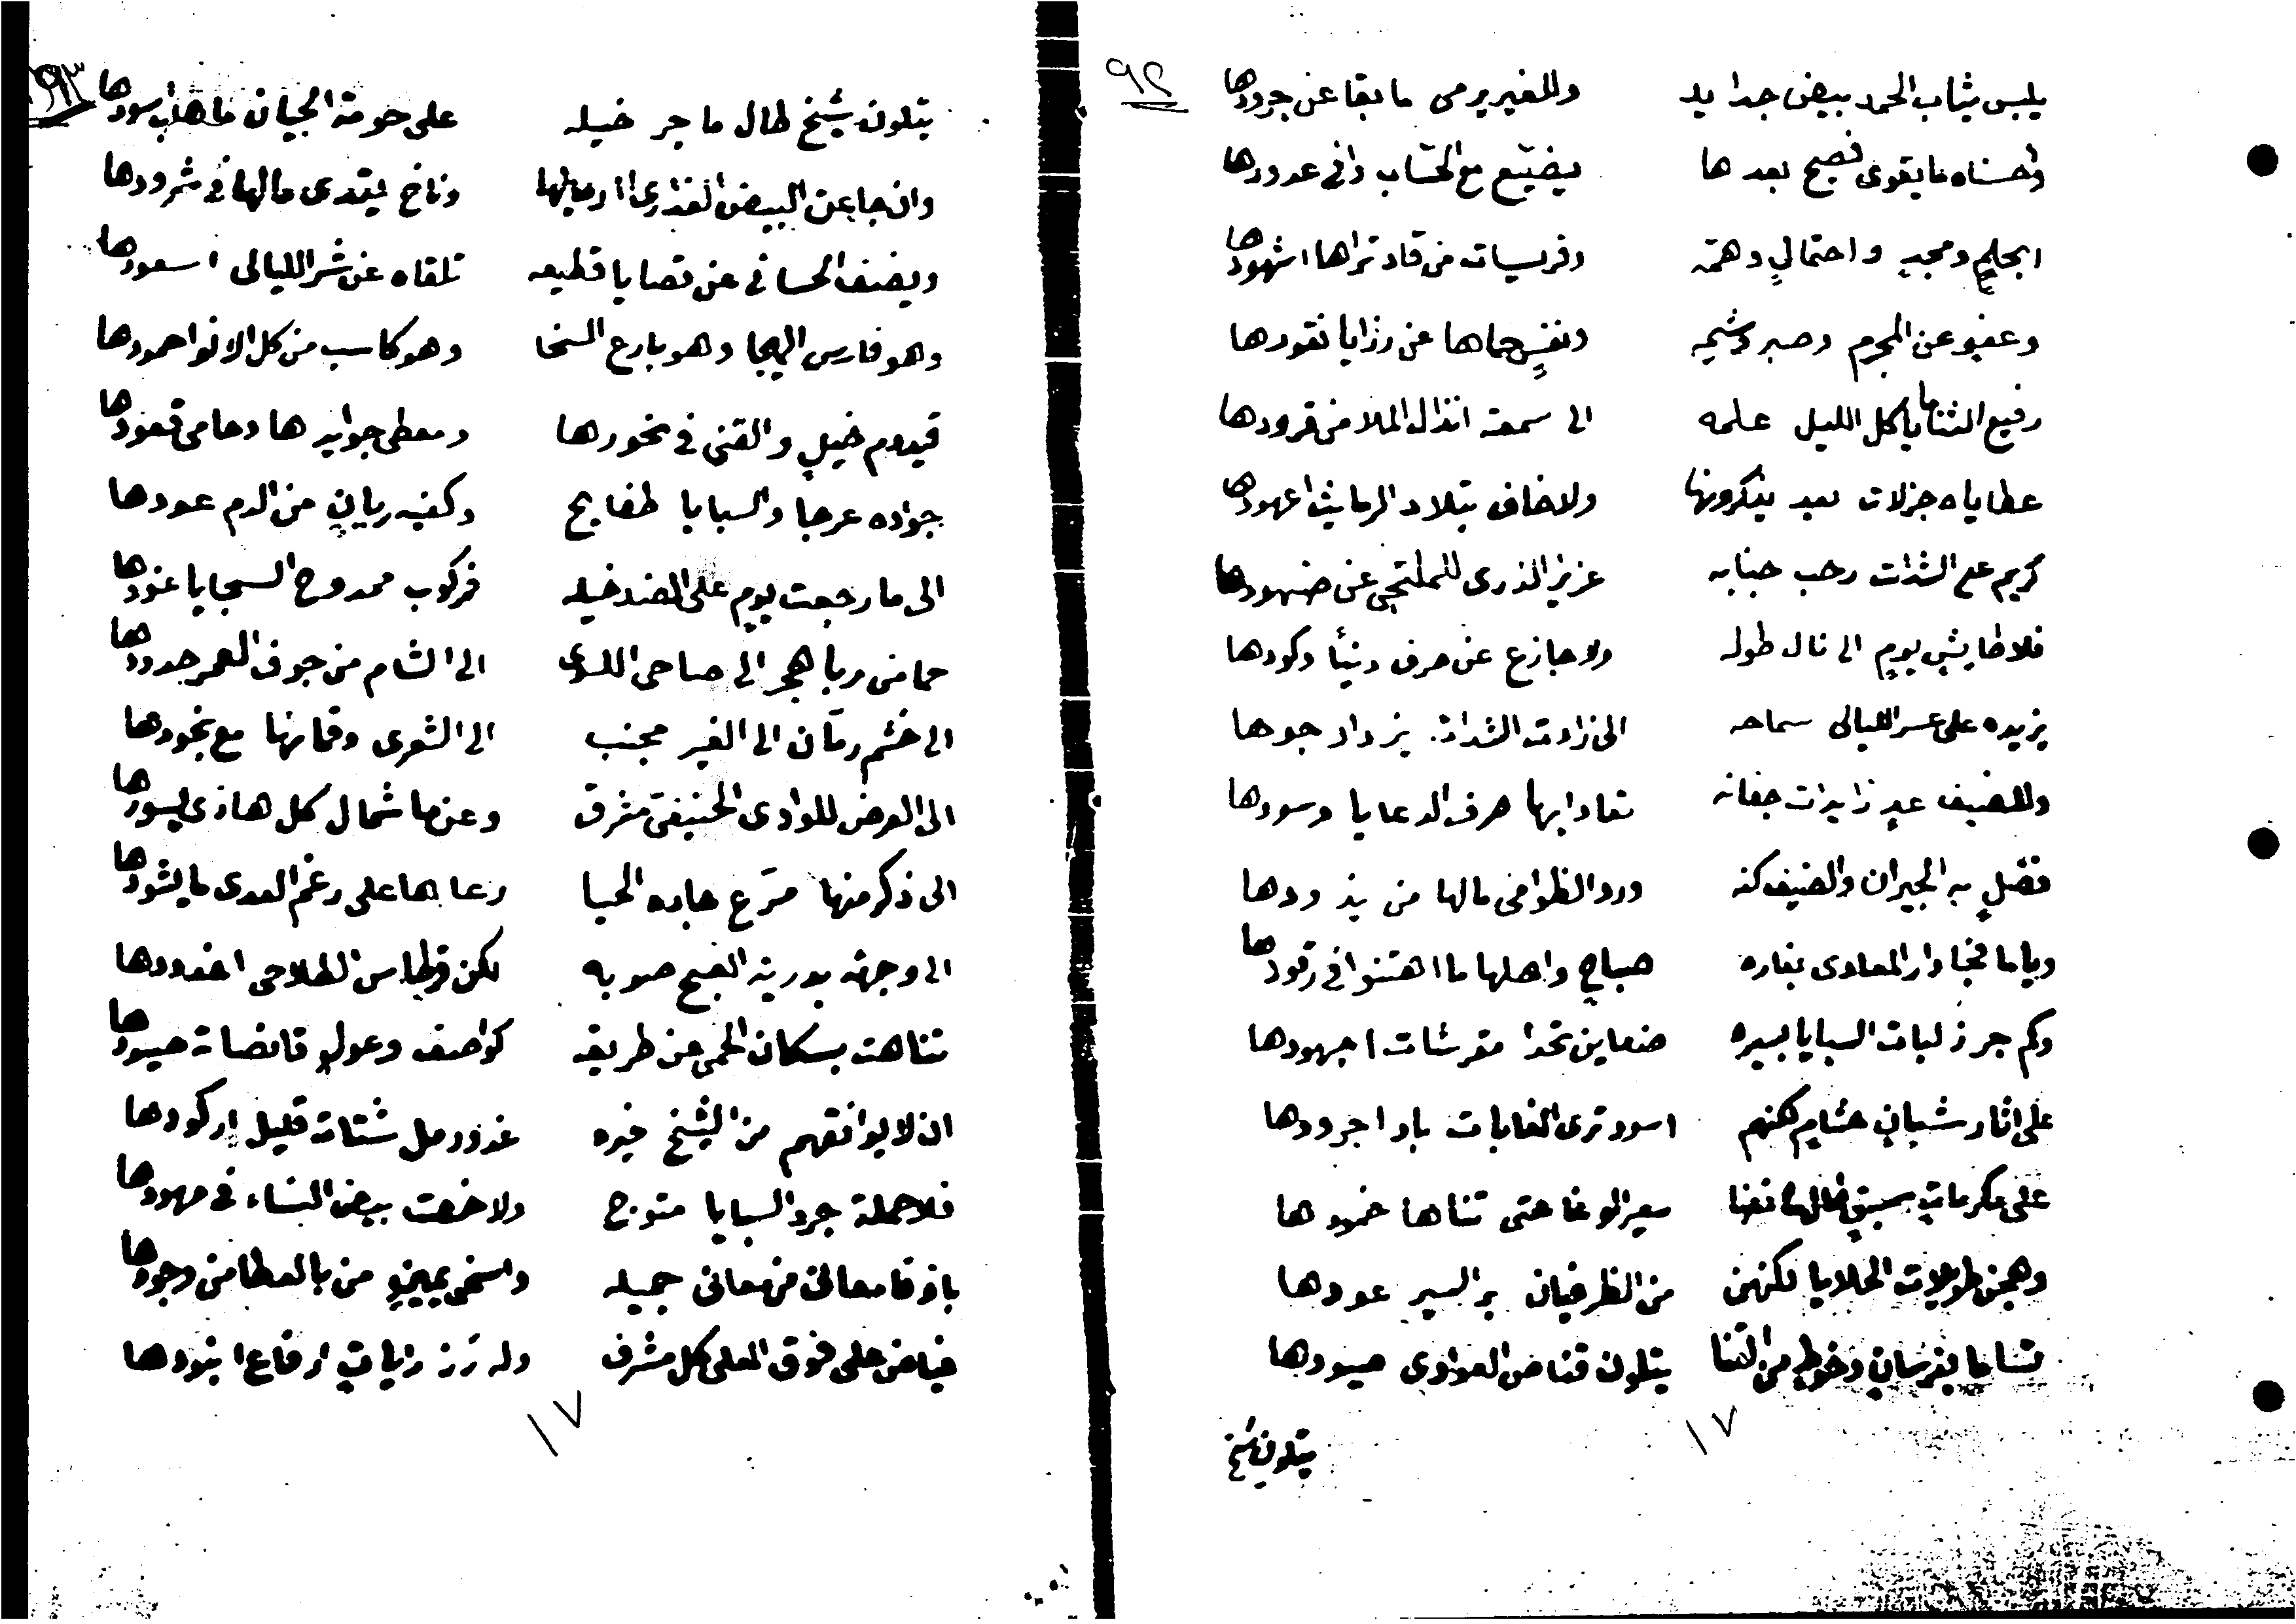 ٩٢
يلبس ثياب الحمد بيض جدايد وللغير يرمى ما بقا عن جرودها
واحسناه ما يقوى فصيح بعدها يضيّع مع الحسّاب وافى عدودها
ابحلمٍ ومجدٍ واحتمالٍ وهمّه وفريسات من قاد تراها اشهودها
وعفوٍ عن المجرم وصبر وشيمه ونفسٍ حماها عن رزايا نقودها
رفيع الثنا ما ياكل الليل علمه الى سمعة انذال الملا من قرودها
عطاياه جزلات بعيد ينكرونها ولا خاف بتلاد الرمايث اعهودها
كريم على الشدات رحب جنابه عزيز الذرى للملتجي عن ضهودها
فلا طايشٍ يومٍ الى نال طوله ولا جازع عن صرف دنيأ وكودها
يزيده على عسر الليالى سماحه الى زادت الشدات يزداد جودها
وللضيف عيدٍ زايدات جفانه تعادا بها صرف الدعايا وسودها
فضلٍ به الجيران والضيف كنه ورد الظوامى مالها من يذودها
وياما فجا دار المعادى بغاره صباحٍ واهلها ما اهتنوا في رقودها
وكم جر زلبات السبايا بسيره ضعاين تحدا مقرشات اجهودها
على اثار شبانٍ حشامٍ كنهم اسود ترى الغابات باد اجرودها
على مكرماتٍ سبّقٍ طال ما نضا سعير الوغا حتى تناها خمودها
وهجنٍ طويلات الحلايا لكنهن من الظرفيان بر السير عودها
تساما بفرسانٍ وخوطٍ من القنا يتلون قناص العوادى صيودها
١٧
يتلون شيخ
٩٣
يتلون شيخ طال ما جر خيله على حومة الجيان ما هاب سودها
وان جا عن البيض العذارى ارعايلها وناخ ليقدى مالها في شرودها
ويضف الحسانى عن قصايا قطيعه تلقاه عن شر الليالى اسعودها
وهو فارس الهيجا وهو بارع السخا وهو كاسب من كل الانوا حمودها
قيدوم خيلٍ والقنى في نحورها ومعطى جوايدها وحامى قعودها
جواده عرجا والسبايا طفايح وكفيه ريانٍ من الدم عودها
الى ما رجعت يومٍ على الضد خيله فركوب ممدوح السجايا عنودها
حما من ربا هجر الى ضاحى اللوى الى الشام من جوف المعمر حدودها
الى خشم رمّان الى الغير مجنب الى الشعرى وقمانها مع نجودها
الى العرض للوادى الحنيفى مشرق وعنها شمال كل هاذى يسودها
الى ذكر منها مترع جاده الحيا رعابها على رغم العدى ما يشودها
الى وجهة بدرية الصبح صوبه لكن قرطاس الطلاحى اخدودها
تناهت بسكان الحمى عن طريقه كواصف وعولٍ قانصات صيودها
ان لا يوافقهم من الشيخ خيره غدو رمل شتات قليل اركودها
فلا حملت جرد السبايا متوج ولا ضمت بيض النساء في مهودها
يا نوفا معالى من معانى جميله واسخى يمينٍ من بالعطا من وجودها
فياض على فوق العلى كل مشرف وله زرز راياتٍ ارفاع ابنودها
١٧